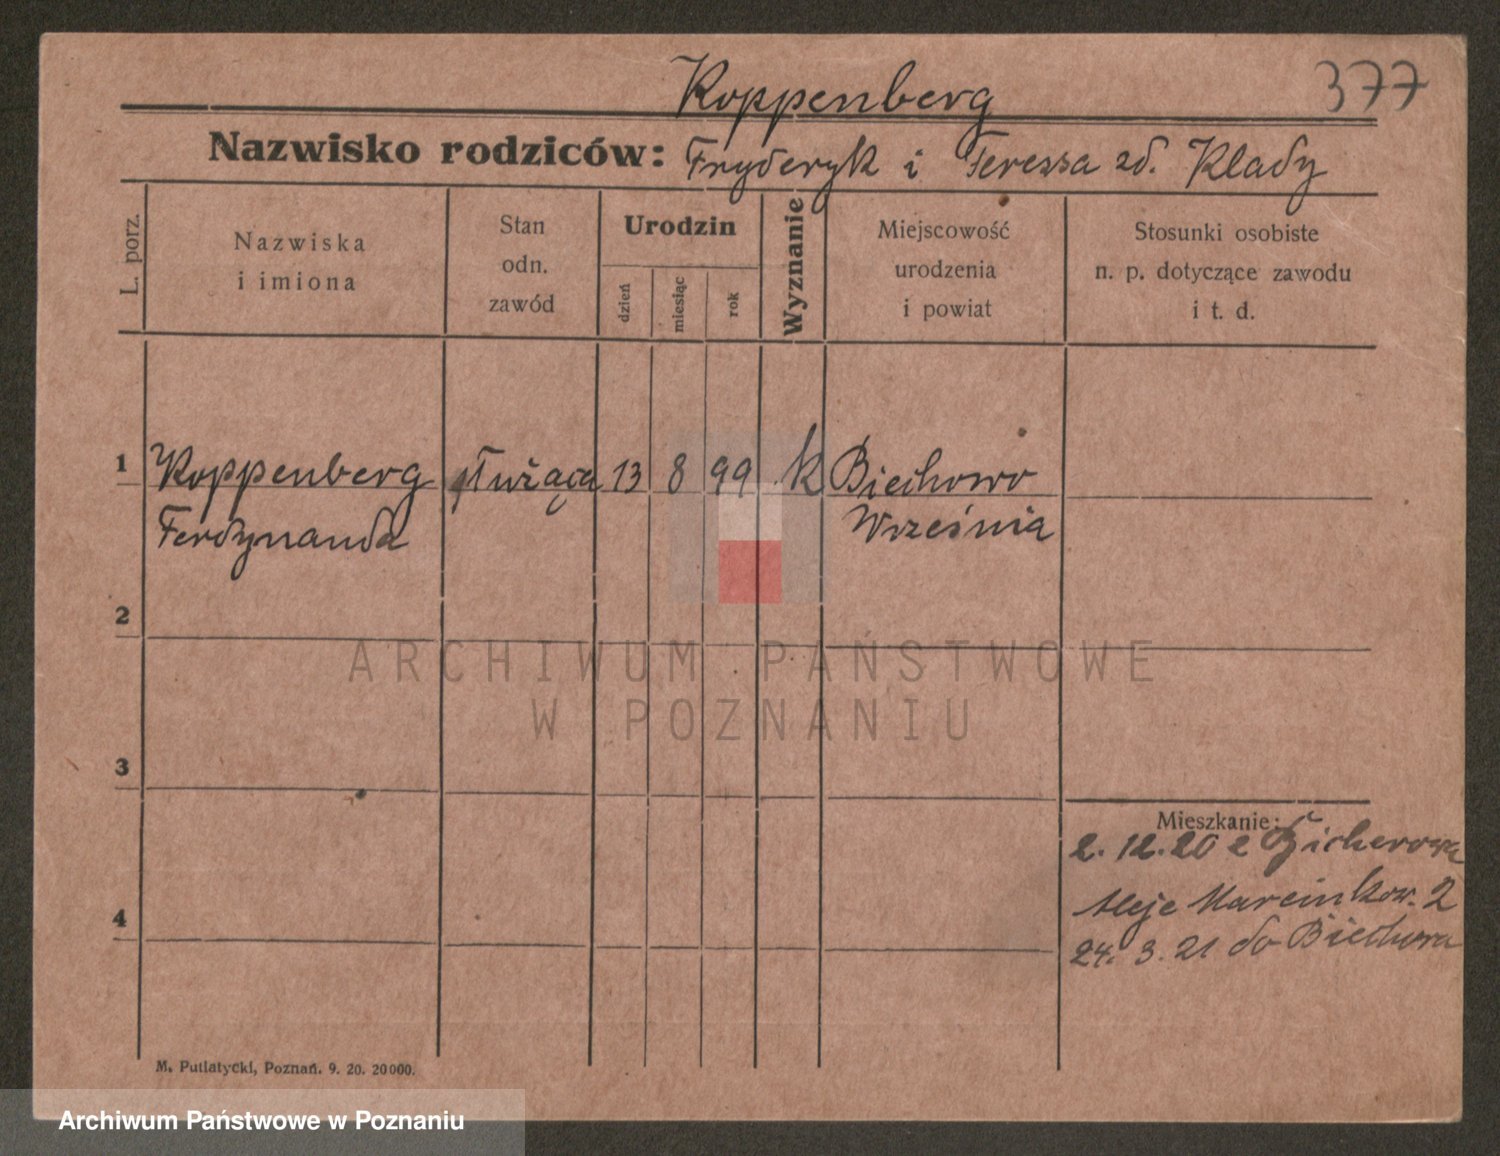 Koppenberg 377
Nazwisko rodziców: Fryderyk i Teressa zd. Klady
L. porz.
Nazwiska
i imiona
Stan
odn.
zawód
Urodzin
dzień
miesiąc
rok
Wyznanie
Miejscowość
urodzenia
i powiat
Stosunki osobiste
n. p. dotyczące zawodu
i t. d.
1 Koppenberg służąca 13 8 99 k Biechowo
Ferdynanda Września
2
ARCHIWUM PAŃSTWOWE
W POZNANIU
3
Mieszkanie:
2. 12. 20 z
4 Aleje Marcinkow. 2
24. 3. 21 do Biechowa
M. Putiatycki, Poznań. 9. 20. 20000.
Archiwum Państwowe w Poznaniu